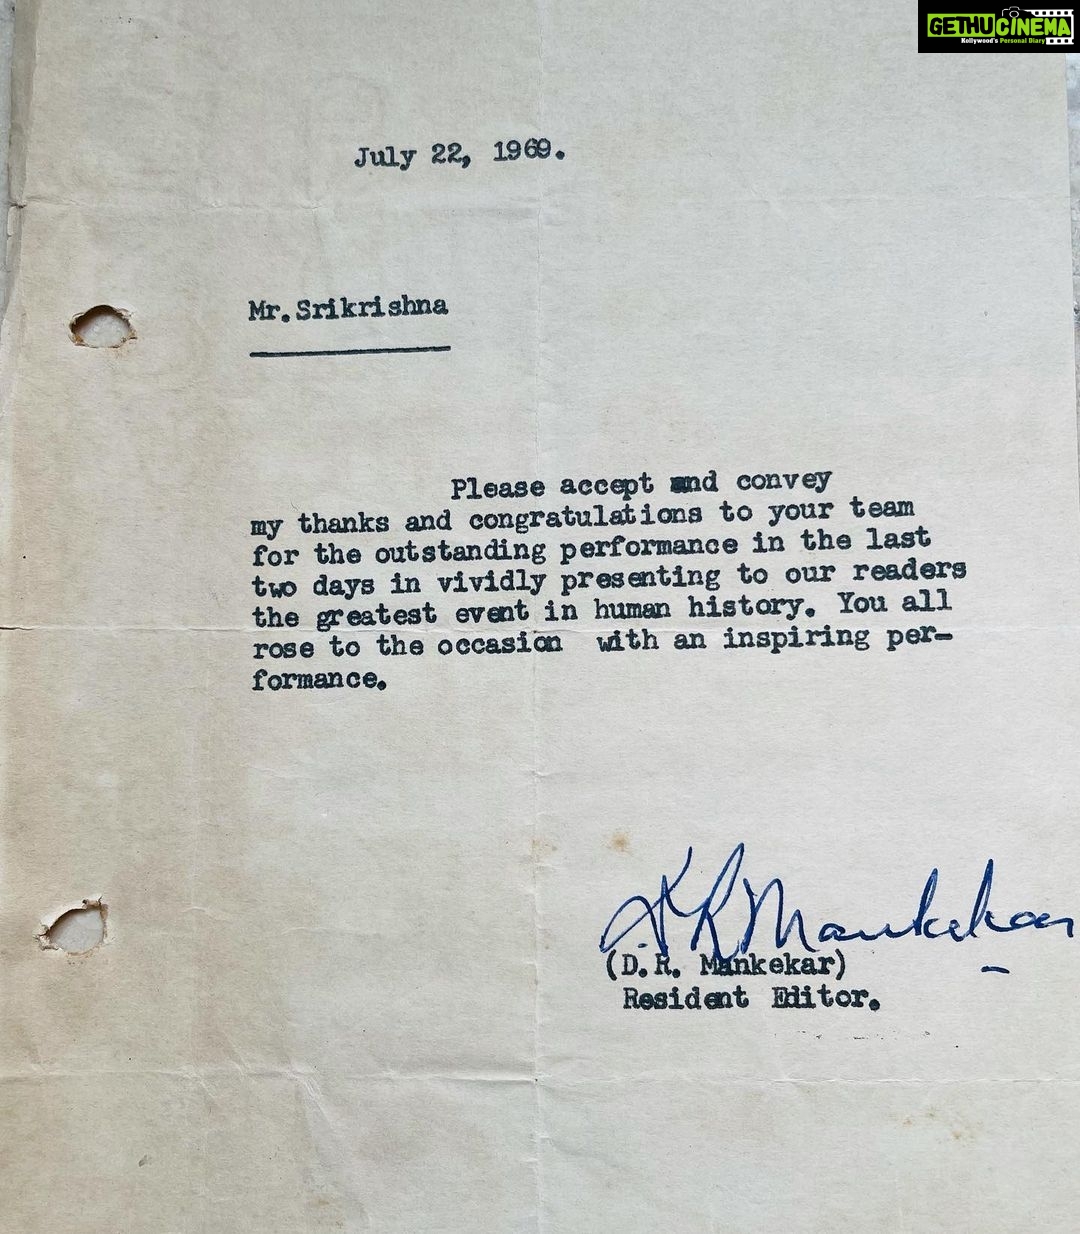 GETHUCINEMA
Kollywood's Personal Diary
July 22, 1969.
Mr.Srikrishna
Please accept and convey
my thanks and congratulations to your team
for the outstanding performance in the last
two days in vividly presenting to our readers
the greatest event in human history. You all
rose to the occasion with an inspiring per-
formance.
D R Mankekar
(D.R. Mankekar)
Resident Editor.